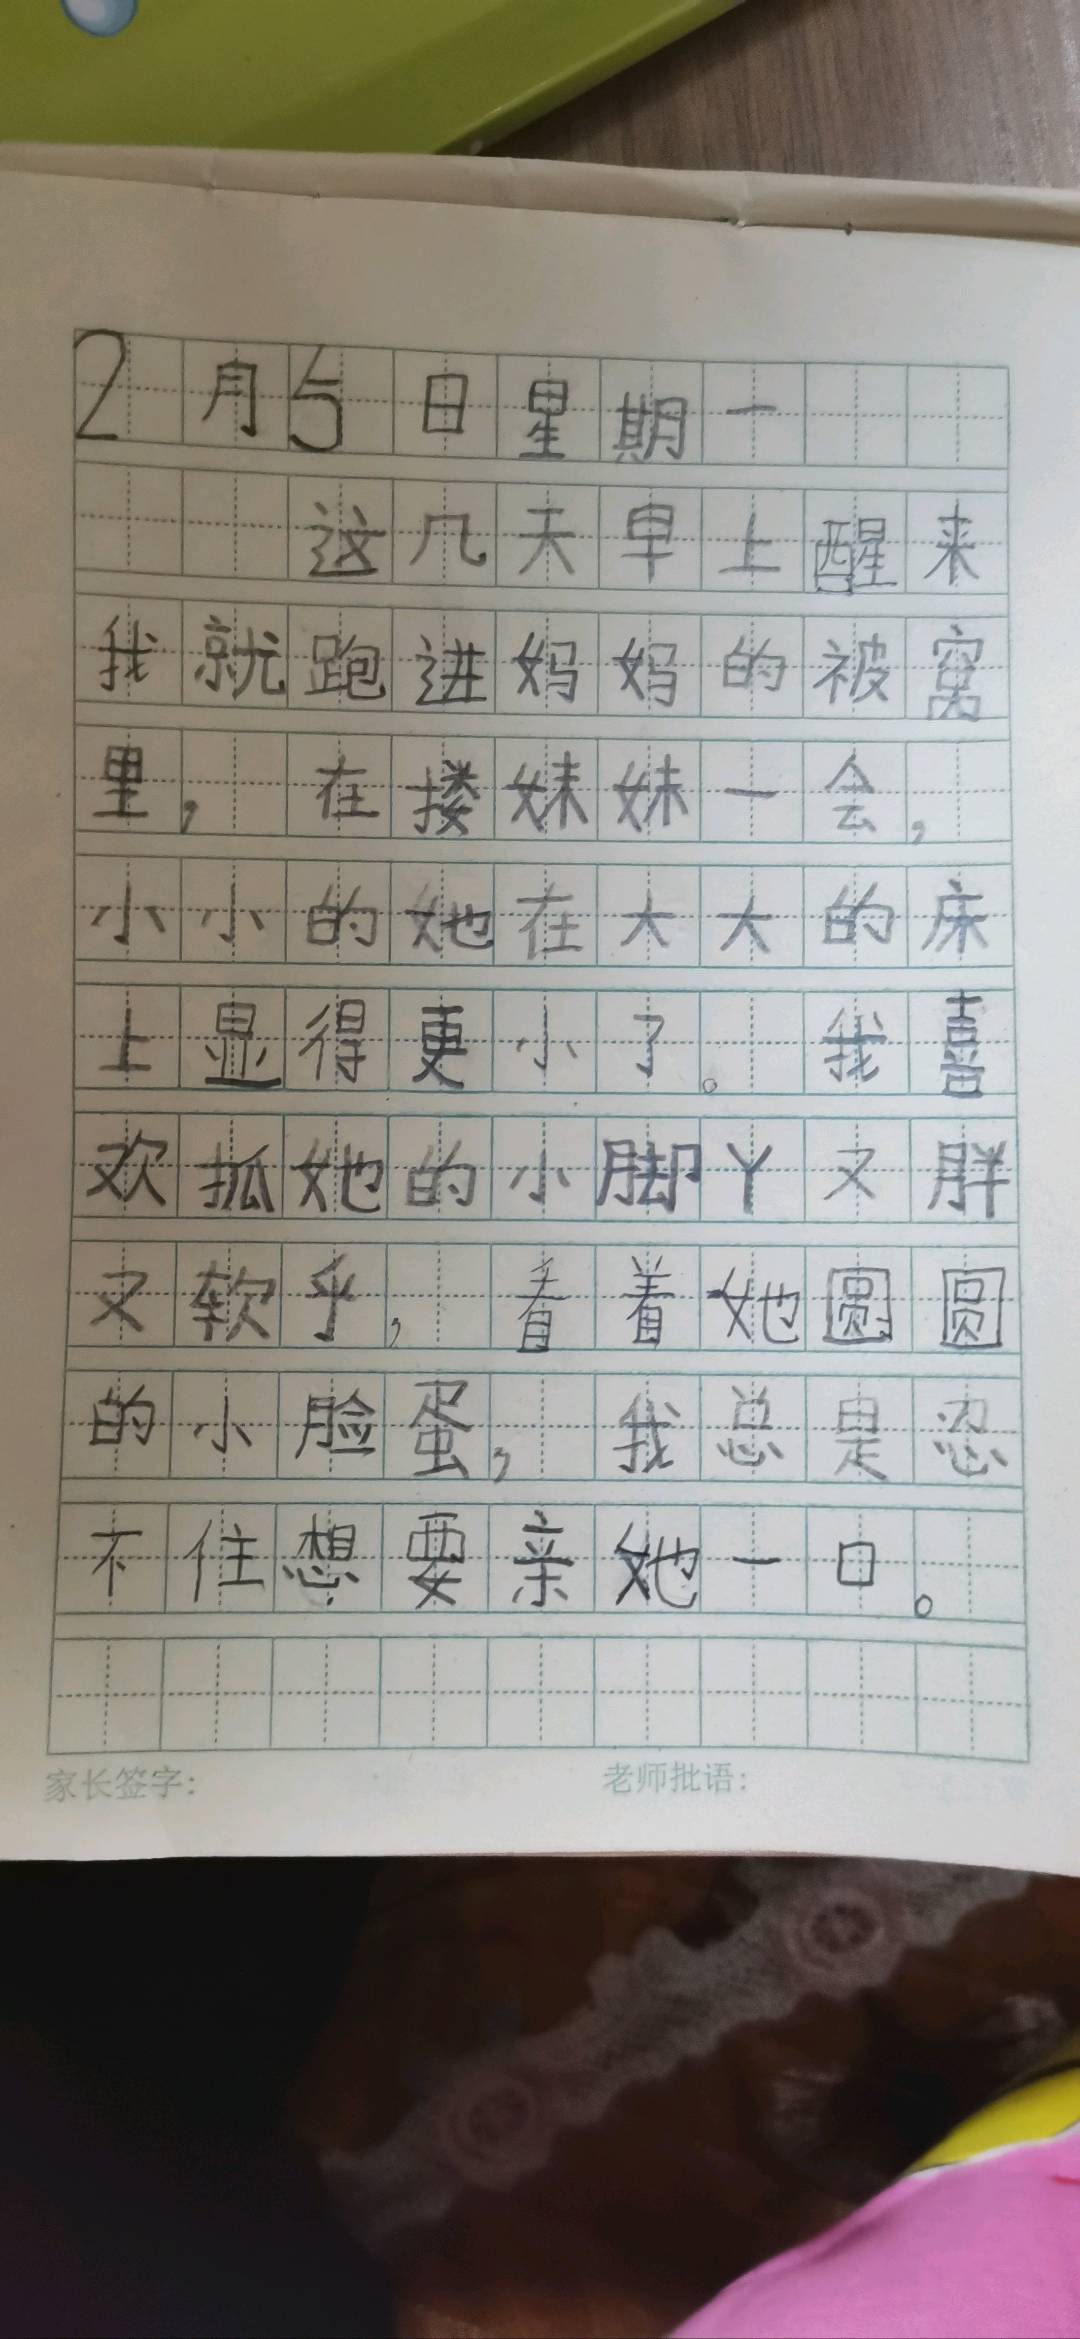 2月5日星期一
这几天早上醒来
我就跑进妈妈的被窝
里，在搂妹妹一会，
小小的她在大大的床
上显得更小了。我喜
欢抓她的小脚丫又胖
又软乎，看着她圆圆
的小脸蛋，我总是忍
不住想要亲她一口。
家长签字： 老师批语：